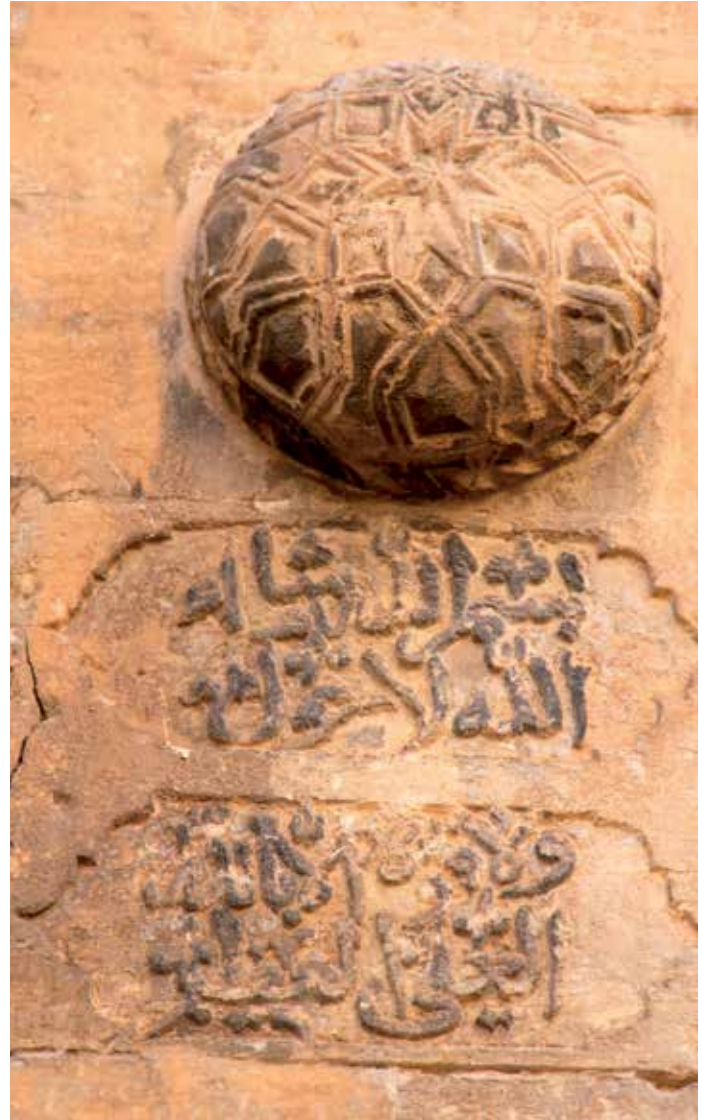 بسم الله ما شاء
الله لا حول
ولا قوة إلا بالله
العلي العظيم